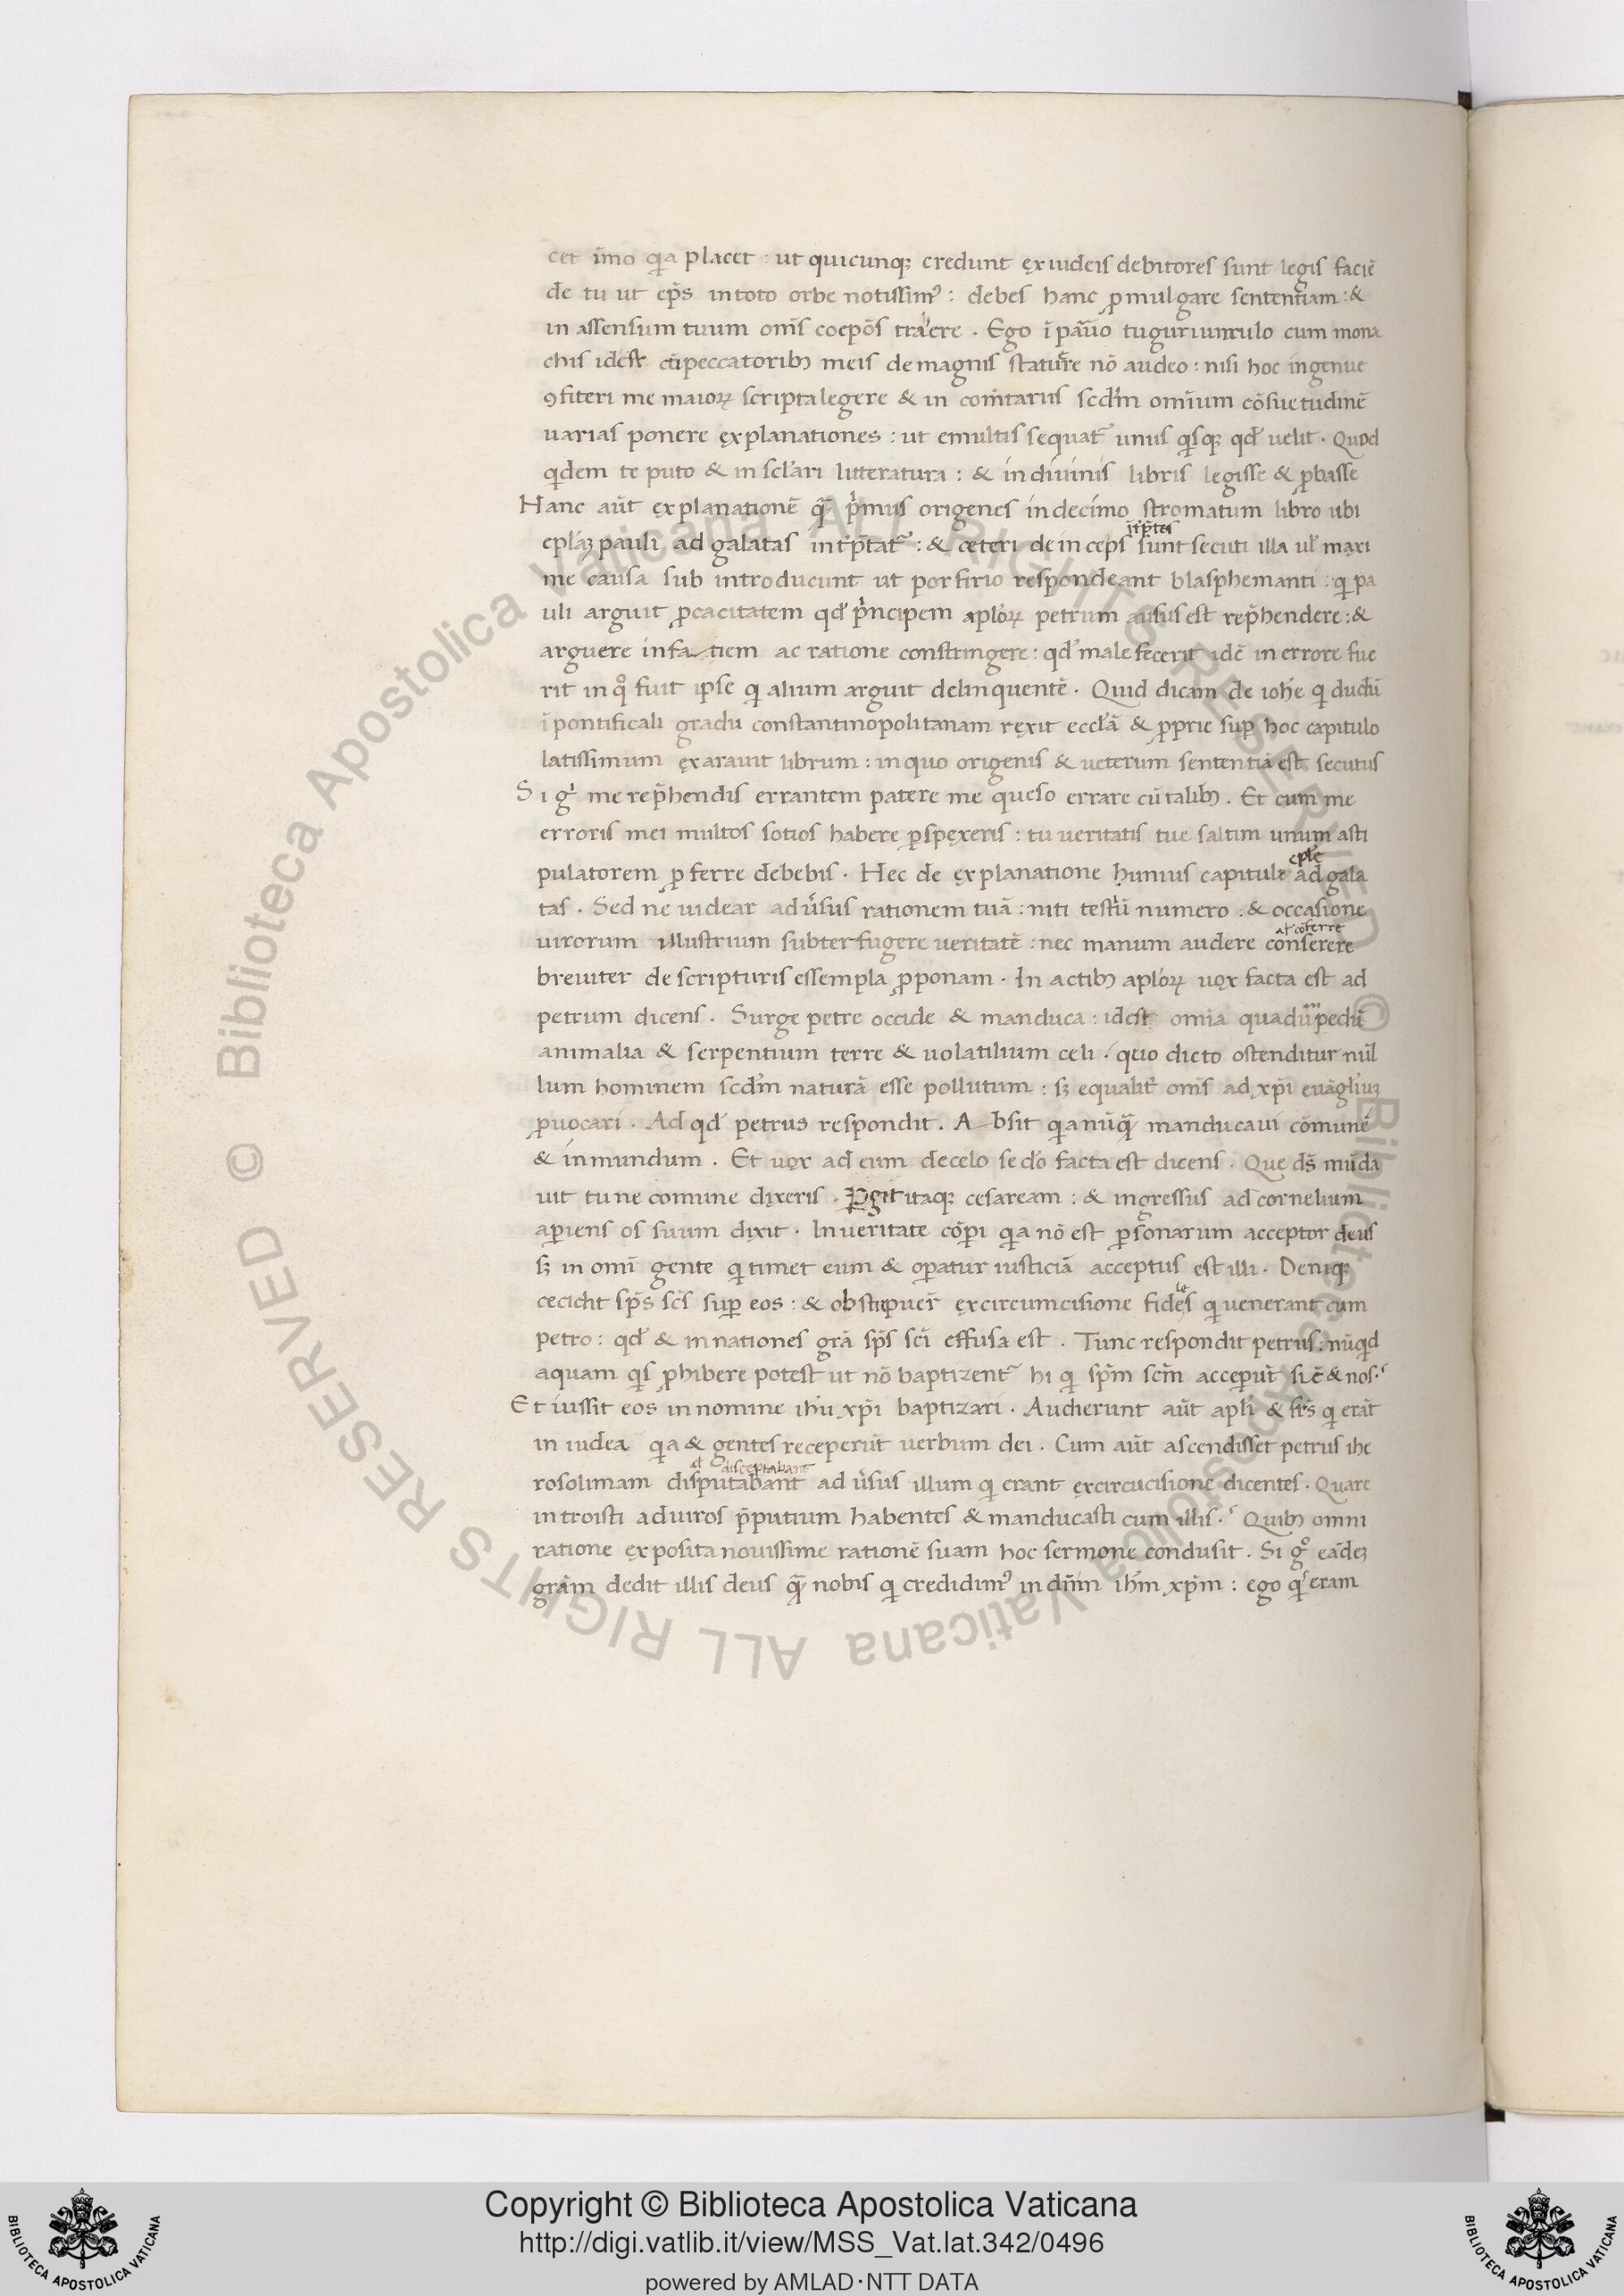 cet īmo qͥa placet : ut quicunqꝫ credunt ex iudeis debitores sunt legis faciē
de tu ut ep̄s in toto orbe notissimꝰ : debes hanc ꝓmulgare sententiam : &
in assensum tuum om̄s coep̄os trahere . Ego ī paruo tuguriunculo cum mona
chis idest cū peccatoribꝫ meis de magnis statuere nō audeo : nisi hoc ingenue
ꝯfiteri me maioꝝ scripta legere & in com̄tariis scd̄m omnium cōsuetudinē
uarias ponere explanationes : ut e multis sequat᷑ unus qͥsqꝫ qd̓ uelit . Quod
qͥdem te puto & in scl̓ari litteratura : & in diuinis libris legisse & ꝓbasse
Hanc aūt explanationē qͣ̄ pͥmus origenes in decimo stromatum libro ubi
epl̓aꝫ pauli ad galatas int̓p̄tat᷑ : & ceteri deinceps īt̓p̄tes sunt secuti illa ul̓ maxi
me causa sub introducunt ut porfirio respondeant blasphemanti : qͥ pa
uli arguit ꝓcacitatem qd̓ pͥncipem apl̓oꝝ petrum ausus est rep̄hendere : &
arguere in fa tiem ac ratione constringere : qd̓ male fecerit idē in errore fue
rit in qͦ fuit ipse qͥ alium arguit delinquentē . Quid dicam de ioh̄e qͥ dudū
ī pontificali gradu constantinopolitanam rexit eccl̓ā & ꝓprie suꝑ hoc capitulo
latissimum exarauit librum : in quo origenis & ueterum sententiā est secutus
Si gͥ me rep̄hendis errantem patere me queso errare cū talibꝫ . Et cum me
erroris mei multos sotios habere ꝑspexeris : tu ueritatis tue saltim unum asti
pulatorem ꝓferre debebis . Hec de explanatione hunius capituli epl̓e ad gala
tas . Sed ne uidear aduersus rationem tuā : niti testiū numero : & occasione
uirorum illustrium subterfugere ueritatē : nec manum audere al̓ cōferre conserere
breuiter de scripturis essempla ꝓponam . In actibꝫ apl̓oꝝ uox facta est ad
petrum dicens . Surge petre occide & manduca : idest om̄ia quadrupedū
animalia & serpentium terre & uolatilium celi . quo dicto ostenditur nul
lum hominem scd̄m naturā esse pollutum : sꝫ equalit̓ om̄s ad xp̄i euāgl̓iuꝫ
ꝓuocari . Ad qd̓ petrus respondit . Absit qͥa nūqͣ̄ manducaui cōmune
& inmundum . Et uox ad eum de celo sed̓o facta est dicens . Que ds̄ mūda
uit tu ne comune dixeris . Ꝑgit itaqꝫ cesaream : & ingressus ad cornelium
aꝑiens os suum dixit . In ueritate cōꝑi qͥa nō est ꝑsonarum acceptor deus
sꝫ in omī gente qͥ timet eum & oꝑatur iusticiā acceptus est illi . Deniqꝫ
cecidit sp̄s sc̄s suꝑ eos : & obstupuer̄ ex circumcisione fideles qͥ uenerant cum
petro : qd̓ & in nationes grā sp̄s sc̄i effusa est . Tunc respondit petrus : nūqͥd
aquam qͥs ꝓhibere potest ut nō baptizent᷑ hi qͥ sp̄m sc̄m acceperūt sic & nos .
Et iussit eos in nomine ih̄u xp̄i baptizari . Audierunt aūt apl̓i & fr̄s qͥ erāt
in iudea qͥa & gentes receperūt uerbum dei . Cum aūt ascendisset petrus ihe
rosolimam al̓ disceptabant disputabant adu̓sus illum qͥ erant ex circūcisione dicentes . Quare
introisti ad uiros p̄putium habentes & manducasti cum illis . Quibꝫ omni
ratione exposita nouissime rationē suam hoc sermone conclusit . Si gͦ eādeꝫ
grām dedit illis deus qͣ̄ nobis qͥ credidimꝰ in dn̄m ih̄m xp̄m : ego qͥs eram
Copyright © Biblioteca Apostolica Vaticana
http://digi.vatlib.it/view/MSS_Vat.lat.342/0496
powered by AMLAD·NTT DATA
BIBLIOTECA APOSTOLICA VATICANA
BIBLIOTECA APOSTOLICA VATICANA
© Biblioteca Apostolica Vaticana ALL RIGHTS RESERVED
© Biblioteca Apostolica Vaticana ALL RIGHTS RESERVED